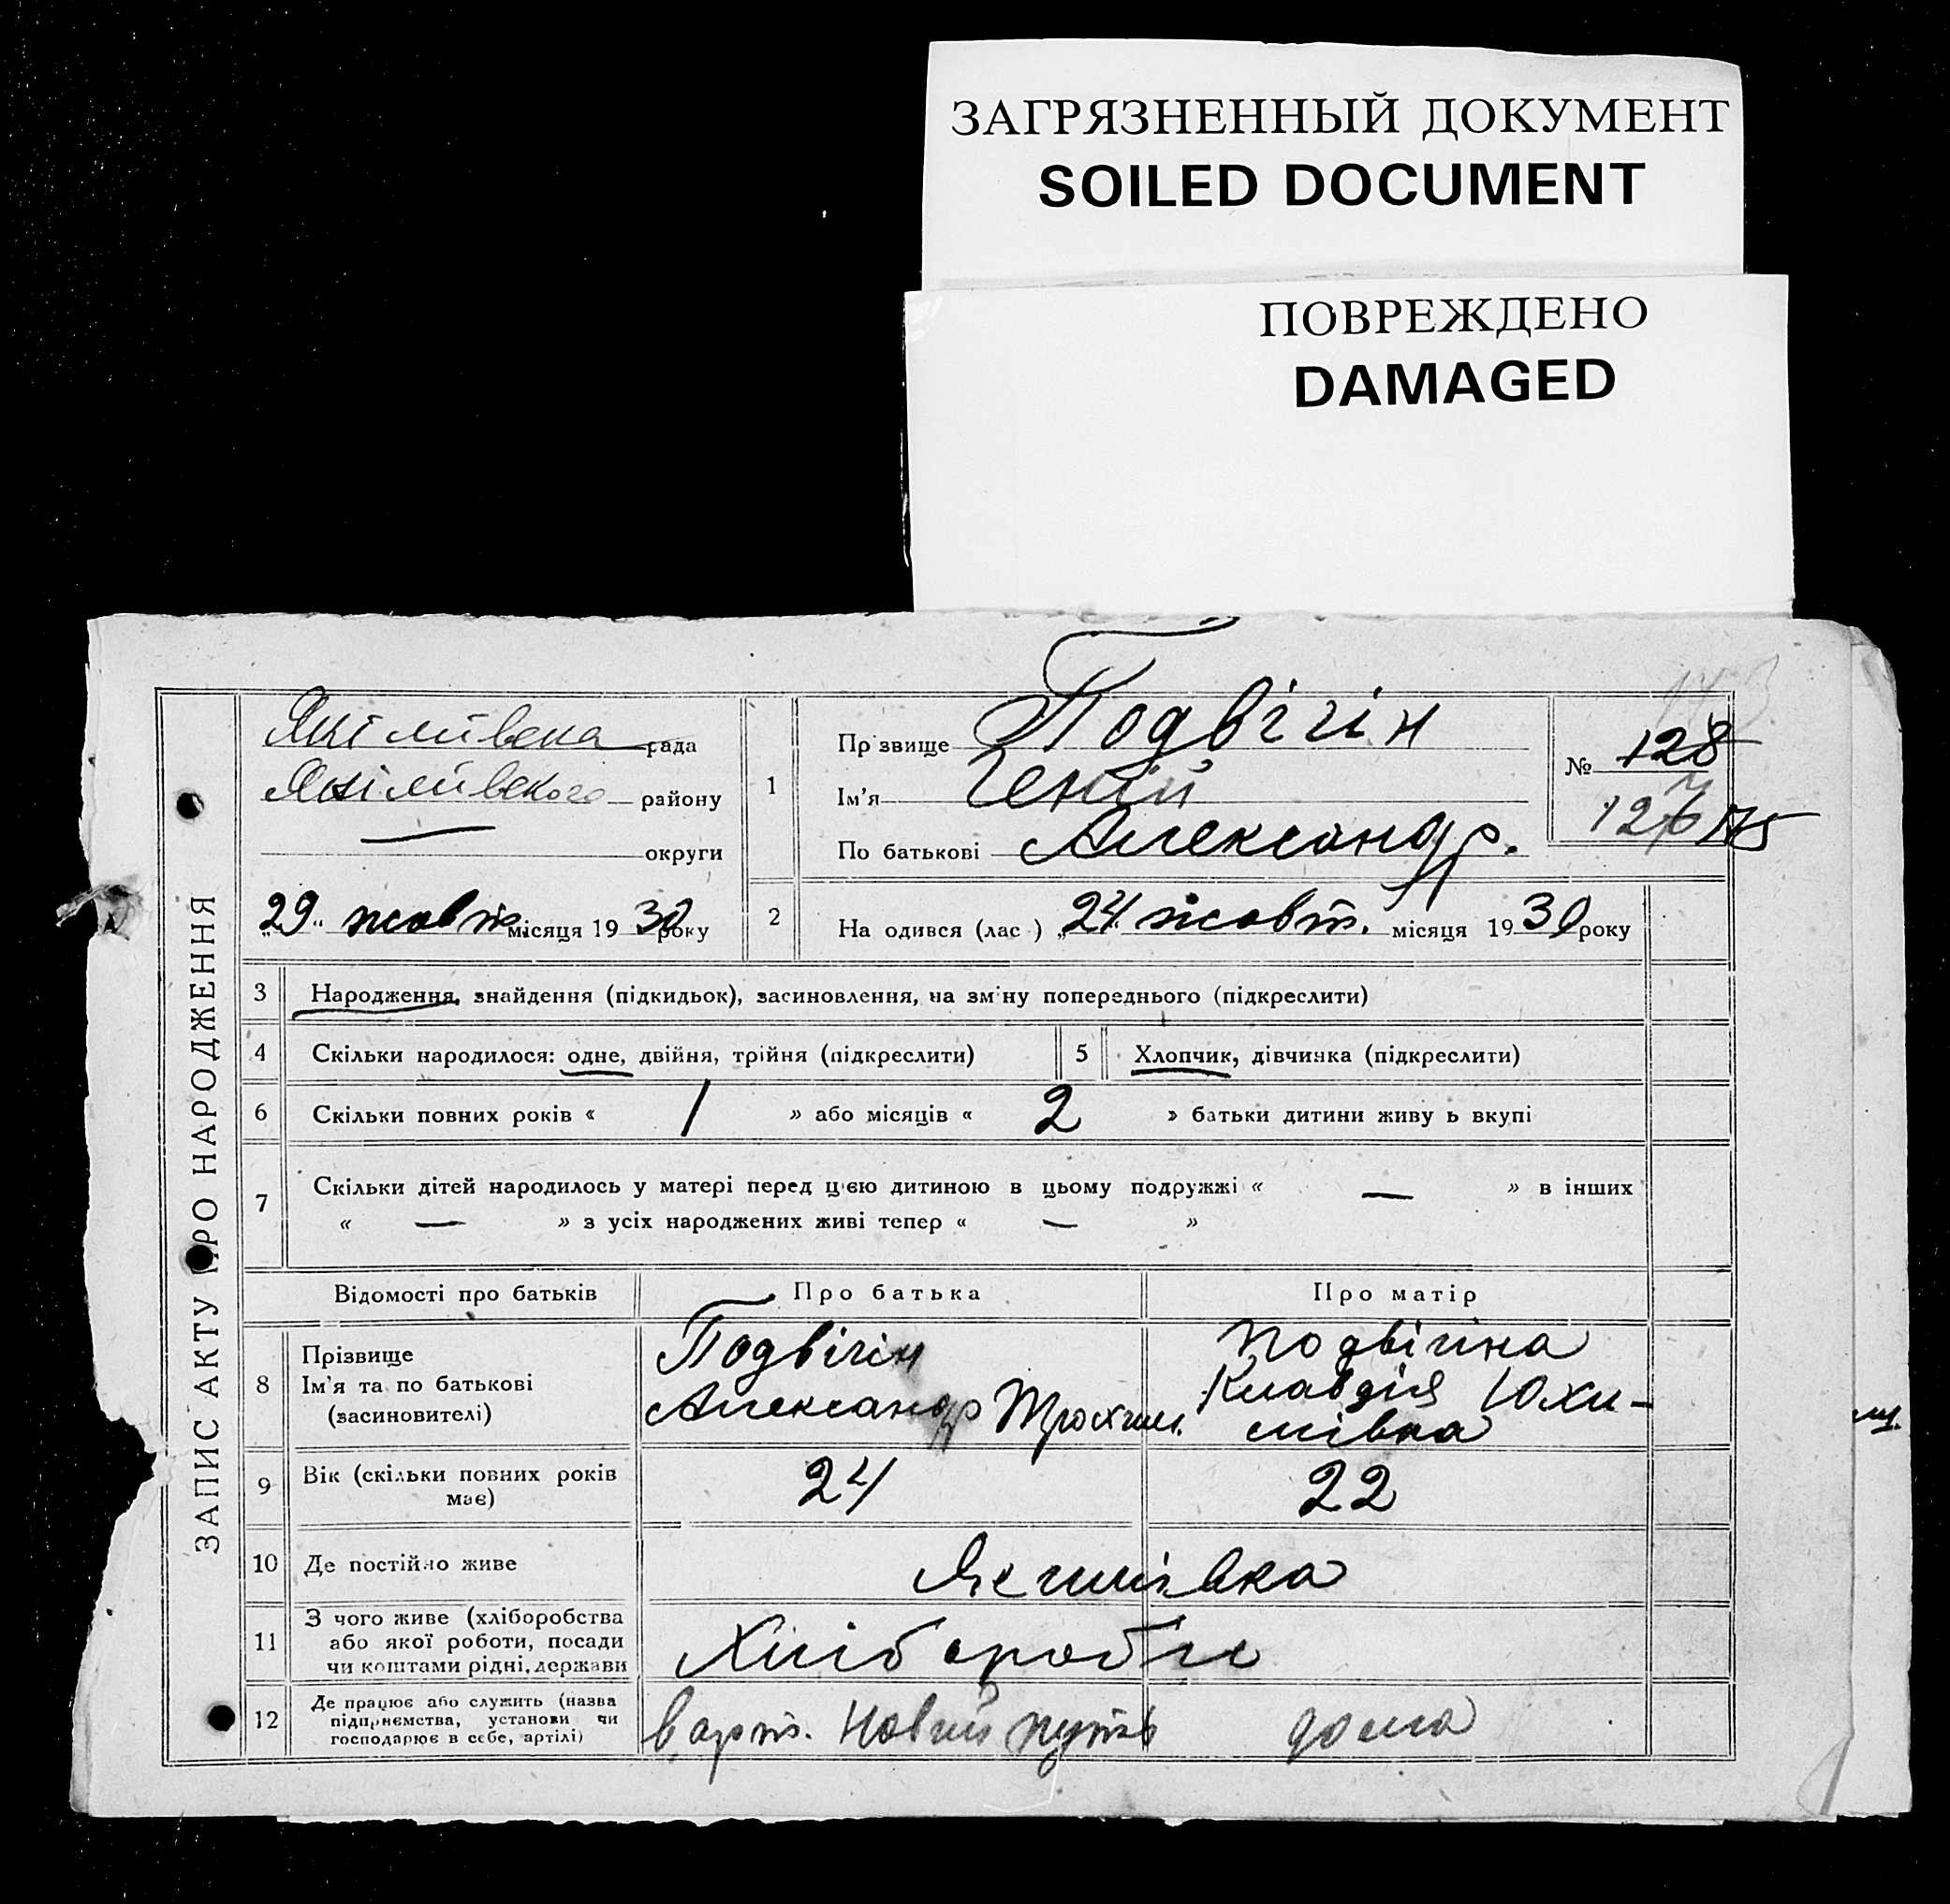 ЗАГРЯЗНЕННЫЙ ДОКУМЕНТ
SOILED DOCUMENT
ПОВРЕЖДЕНО
DAMAGED
ЗАПИС АКТУ ПРО НАРОДЖЕННЯ
Якімівська рада
Якімівського району
округи
„29“ жовт. місяця 1930 року
1
Прізвище Подвігін
Ім'я Геній
По батькові Александр.
№ 128
127 175
2 На одився (лас ) „24“ жовт. місяця 1930 року
3 Народження, знайдення (підкидьок), засиновлення, на зміну попереднього (підкреслити)
4 Скільки народилося: одне, двійня, трійня (підкреслити) 5 Хлопчик, дівчинка (підкреслити)
6 Скільки повних років « 1 » або місяців « 2 » батьки дитини живу ь вкупі
7 Скільки дітей народилось у матері перед цією дитиною в цьому подружжі « — » в інших
« — » з усіх народжених живі тепер « — »
Відомості про батьків Про батька Про матір
8 Прізвище
Ім'я та по батькові
(засиновителі)
Подвігін
Александр Трохим.
Подвігіна
Клавдія Юхи-
мівна
9 Вік (скільки повних років
має)
24 22
10 Де постійно живе Якимівка
11 З чого живе (хліборобства
або якої роботи, посади
чи коштами рідні, держави
Хлібороби
12 Де працює або служить (назва
підприємства, установи чи
господарює в себе, артілі)
В арт. Новий путь дома